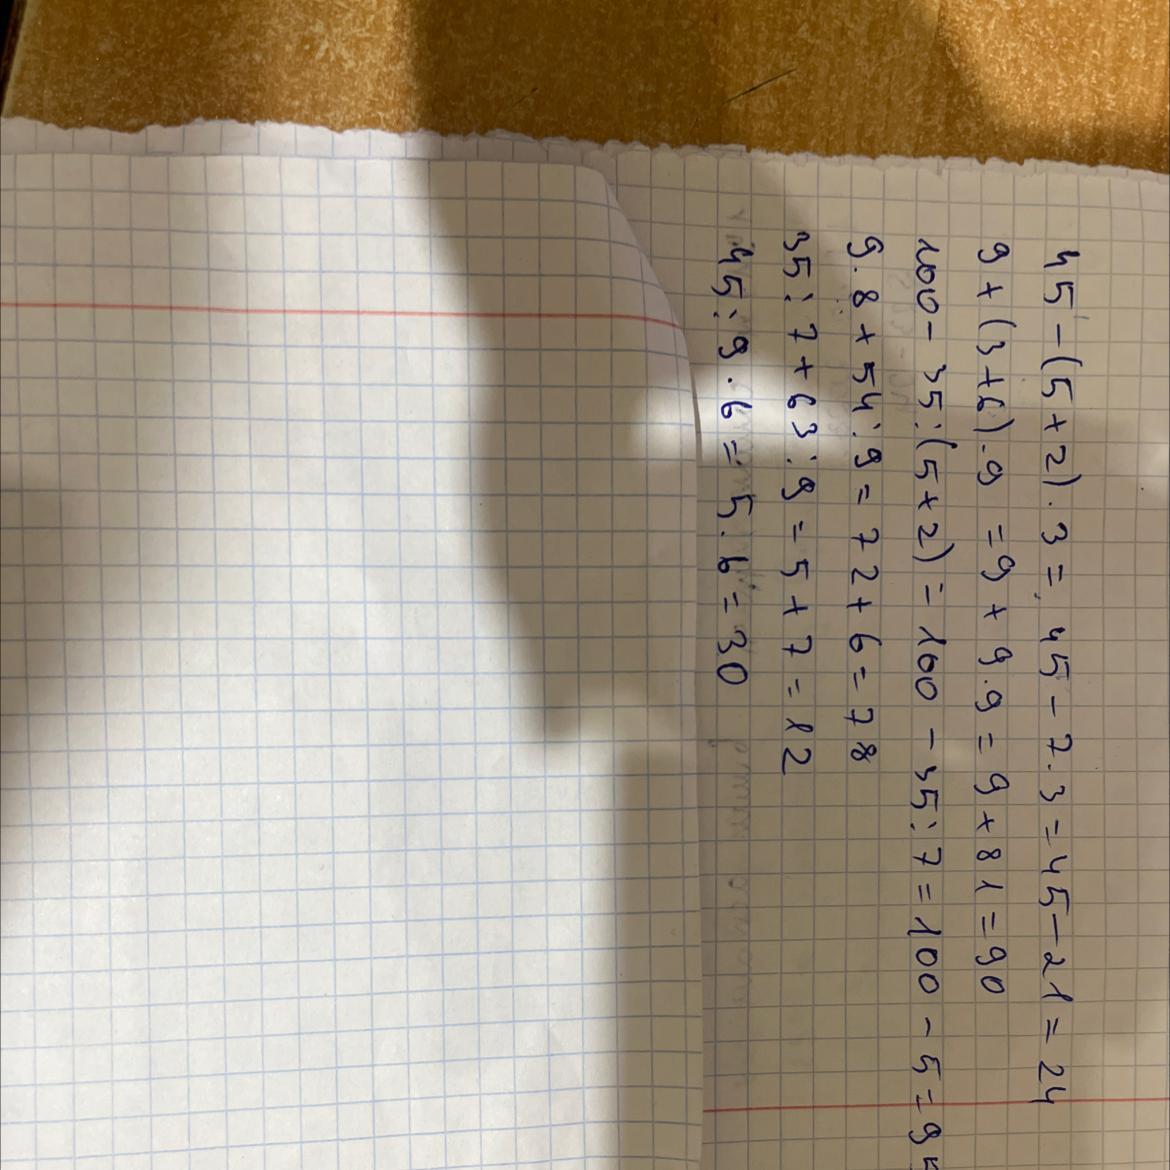 45 - (5 + 2) . 3 = 45 - 7 . 3 = 45 - 21 = 24
9 + (3 + 6) . 9 = 9 + 9 . 9 = 9 + 81 = 90
100 - 35 : (5 + 2) = 100 - 35 : 7 = 100 - 5 = 95
9 . 8 + 54 : 9 = 72 + 6 = 78
35 : 7 + 63 : 9 = 5 + 7 = 12
45 : 9 . 6 = 5 . 6 = 30